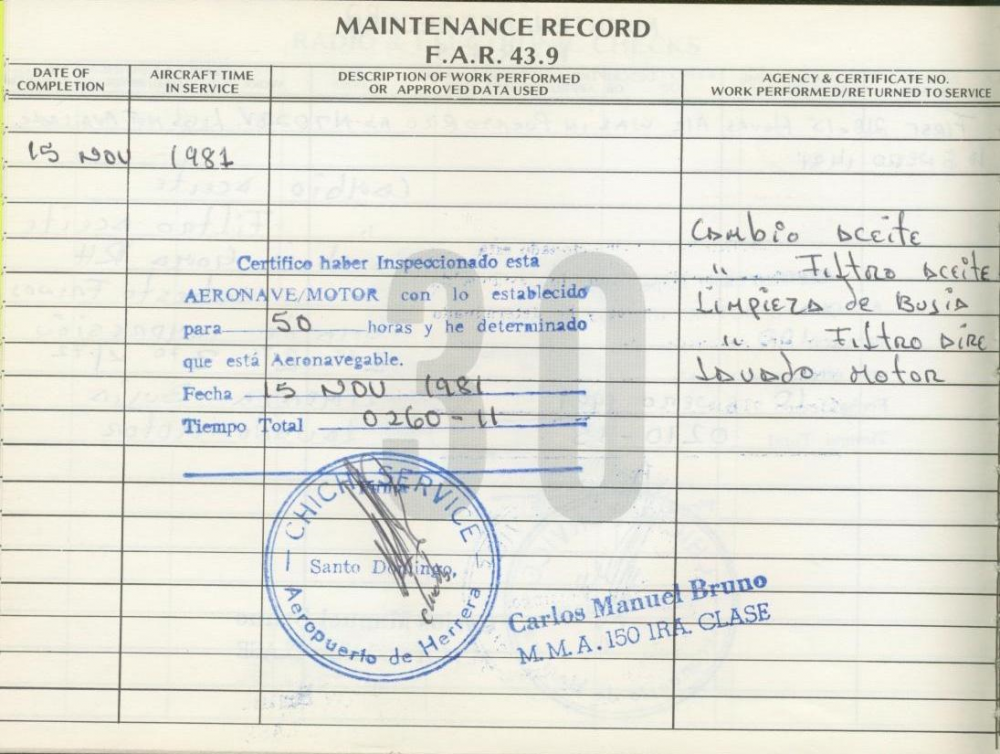 MAINTENANCE RECORD
F.A.R. 43.9
DATE OF COMPLETION
AIRCRAFT TIME IN SERVICE
DESCRIPTION OF WORK PERFORMED OR APPROVED DATA USED
AGENCY & CERTIFICATE NO. WORK PERFORMED/RETURNED TO SERVICE
15 NOV 1981
Cambio aceite
" Filtro aceite
Limpieza de Bujia
" Filtro aire
Lavado Motor
30
Certifico haber Inspeccionado esta
AERONAVE/MOTOR con lo establecido
para 50 horas y he determinado
que está Aeronavegable.
Fecha 15 NOV 1981
Tiempo Total 0260-11
CHICHI SERVICE
Santo Domingo,
Aeropuerto de Herrera
Carlos Manuel Bruno
M.M.A. 150 1RA. CLASE